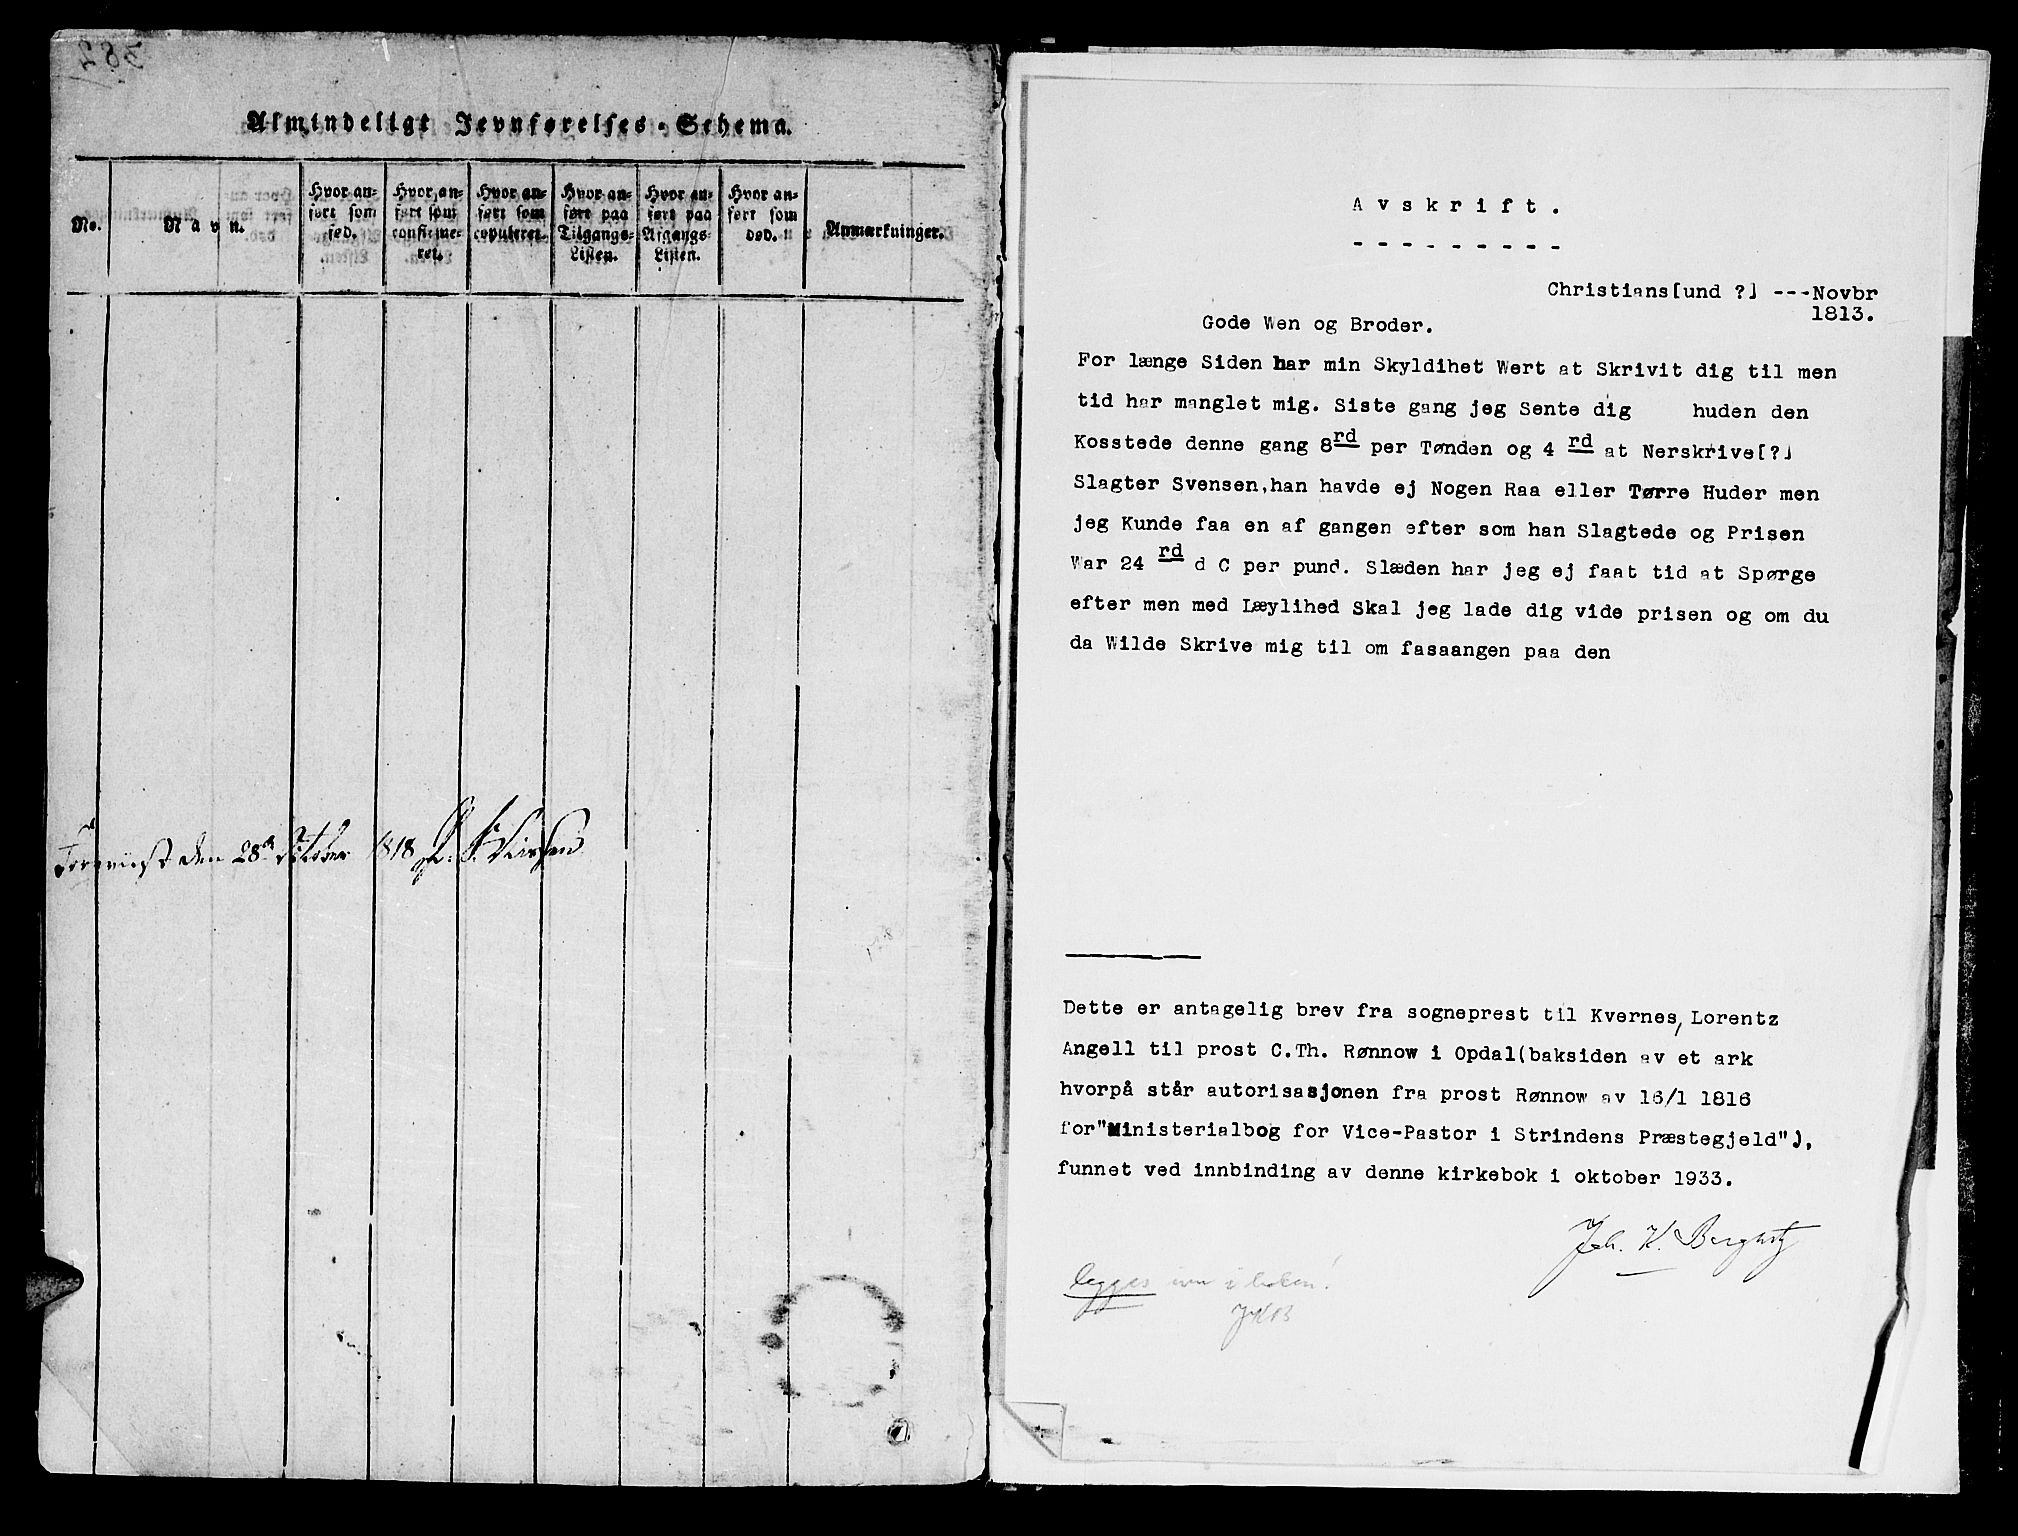 Almindeligt Jevnførelses-Schema.
No.
Navn.
Hvor an-
ført som
fød.
Hvor an-
ført som
confirme-
ret.
Hvor an-
ført som
copuleret.
Hvor an-
ført paa
Tilgangs-
Listen.
Hvor an-
ført paa
Afgangs-
Listen.
Hvor an-
ført som
død.
Anmærkninger.
Foreviist den 28de October 1818
Avskrift.
---------
Christians[und ?] ---Novbr
1813.
Gode Wen og Broder.
For længe Siden har min Skyldihet Wert at Skrivit dig til men
tid har manglet mig. Siste gang jeg Sente dig huden den
Kosstede denne gang 8rd per Tønden og 4 rd at Nerskrive[?]
Slagter Svensen, han havde ej Nogen Raa eller Tørre Huder men
jeg Kunde faa en af gangen efter som han Slagtede og Prisen
War 24 rd d C per pund. Slæden har jeg ej faat tid at Spørge
efter men med Læylihed Skal jeg lade dig vide prisen og om du
da Wilde Skrive mig til om fasaangen paa den
Dette er antagelig brev fra sogneprest til Kvernes, Lorentz
Angell til prost C.Th. Rønnow i Opdal(baksiden av et ark
hvorpå står autorisasjonen fra prost Rønnow av 16/1 1816
for"Ministerialbog for Vice-Pastor i Strindens Præstegjeld"),
funnet ved innbinding av denne kirkebok i oktober 1933.
Joh. K. Bergwitz
legges inn i boken!
JKB